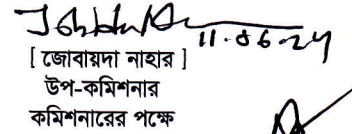 11.06.24
[ জোবায়দা নাহার ]
উপ-কমিশনার
কমিশনারের পক্ষে